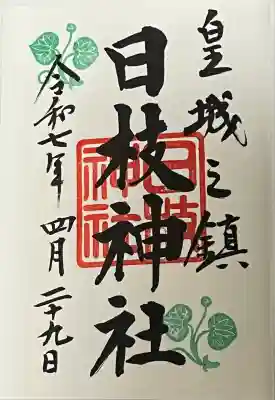 皇城之鎮
日枝神社
日枝神社
令和七年 四月 二十九日